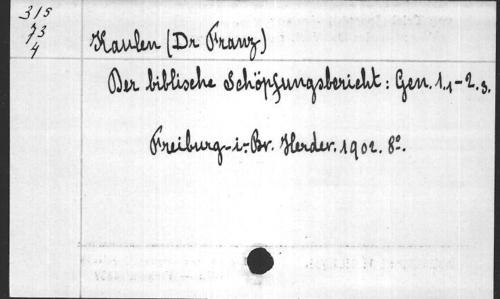 315
73
4
Kaulen (Dr Franz)
Der biblische Schöpfungsbericht: Gen. 1,1-2,3.
Freiburg-i-Br. Herder. 1902. 8º.